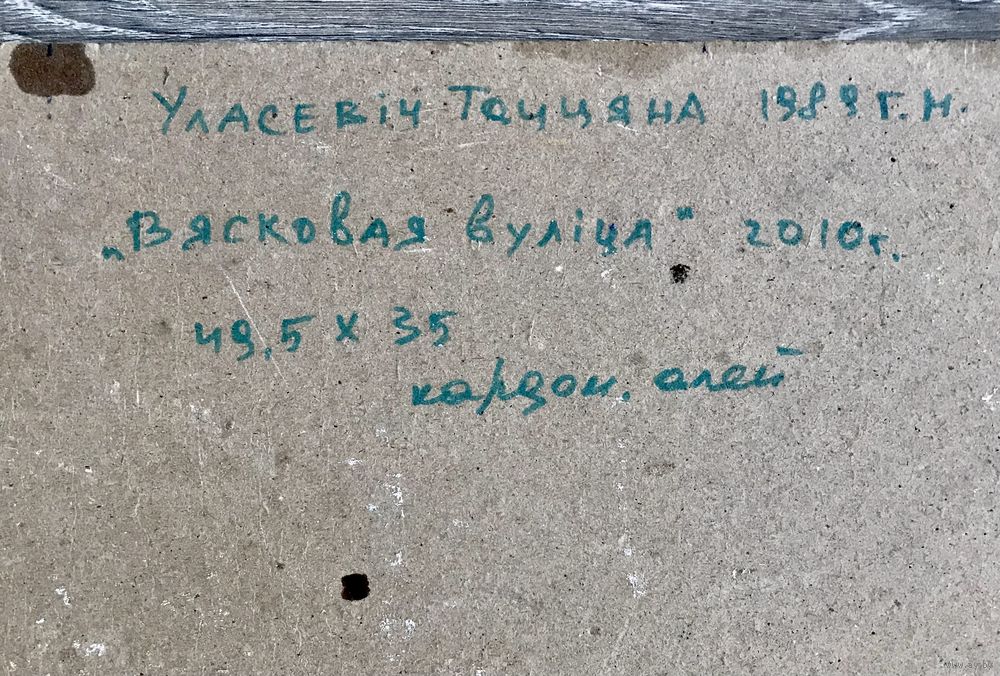 Уласевіч Таццяна 1989 г.н.
„Вясковая вуліца" 2010 г.
49,5 х 35
кардон. алей